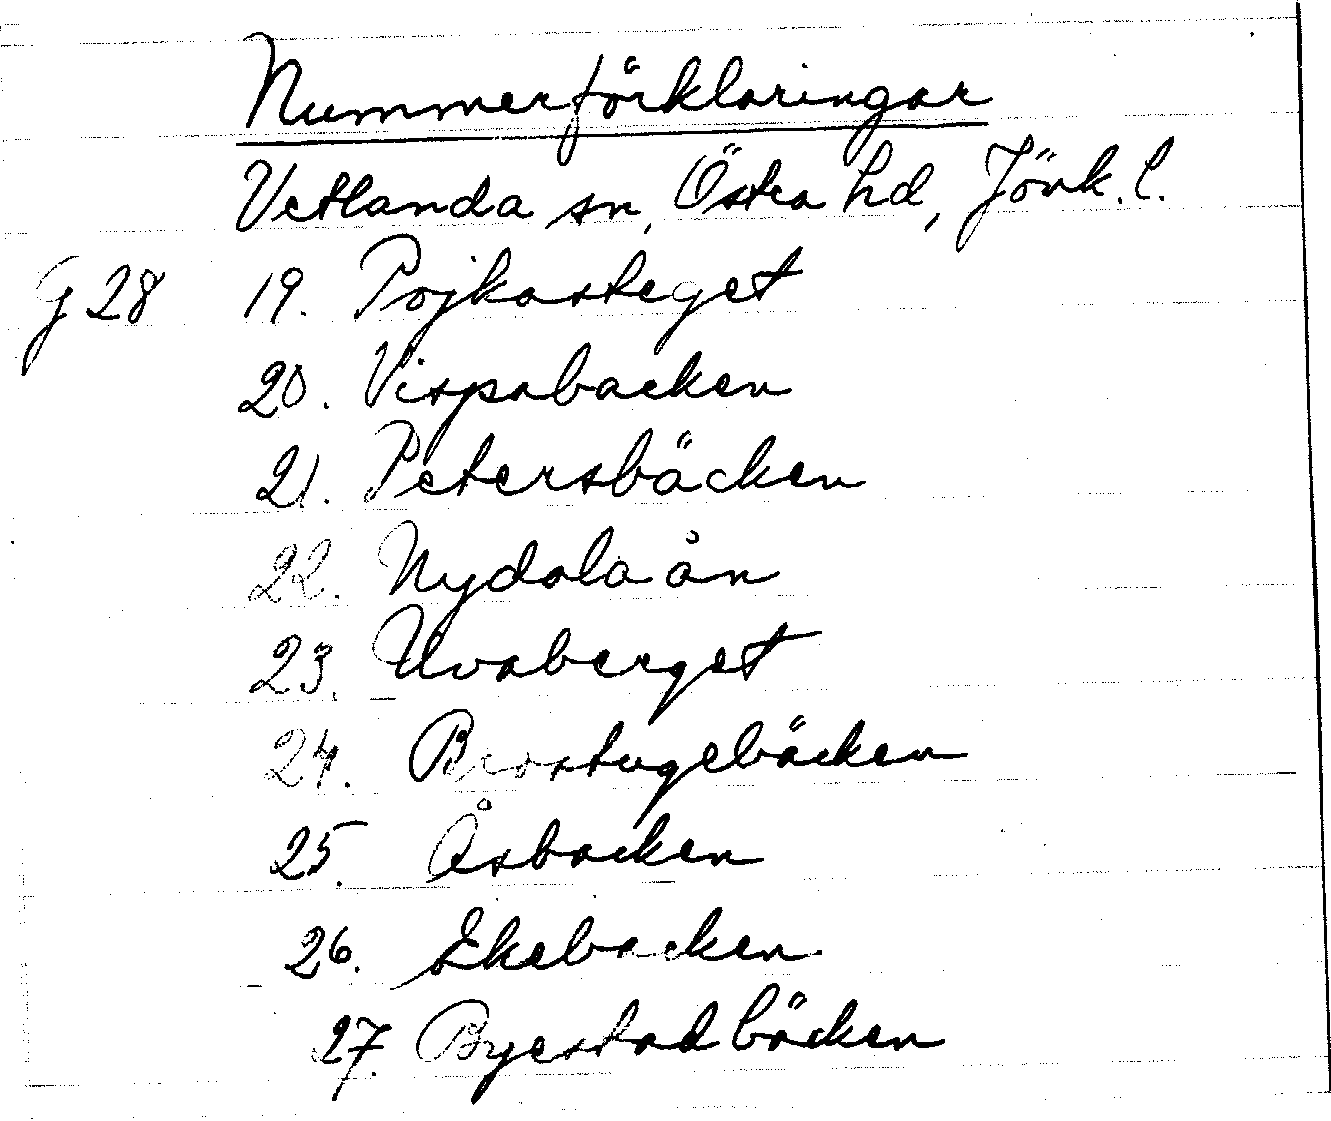 Nummerförklaringar
Vetlanda sn, Östra hd, Jönk. l.
G 28 19. Pojkasteget
20. Vispabacken
21. Petersbäcken
22. Nydala ån
23. Uvaberget
24. Brostugebäcken
25. Åsbacken
26. Ekebacken
27. Byestad bäcken